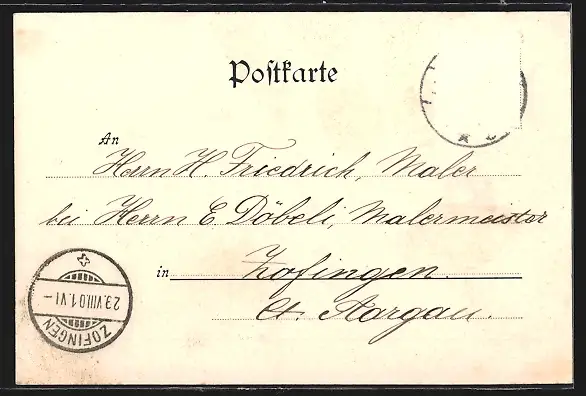 Postkarte
An
Herrn H. Friedrich, Maler
bei Herrn E. Döbeli, Malermeister
in Zofingen.
Ct. Aargau.
23.VIII.01.VI-
ZOFINGEN